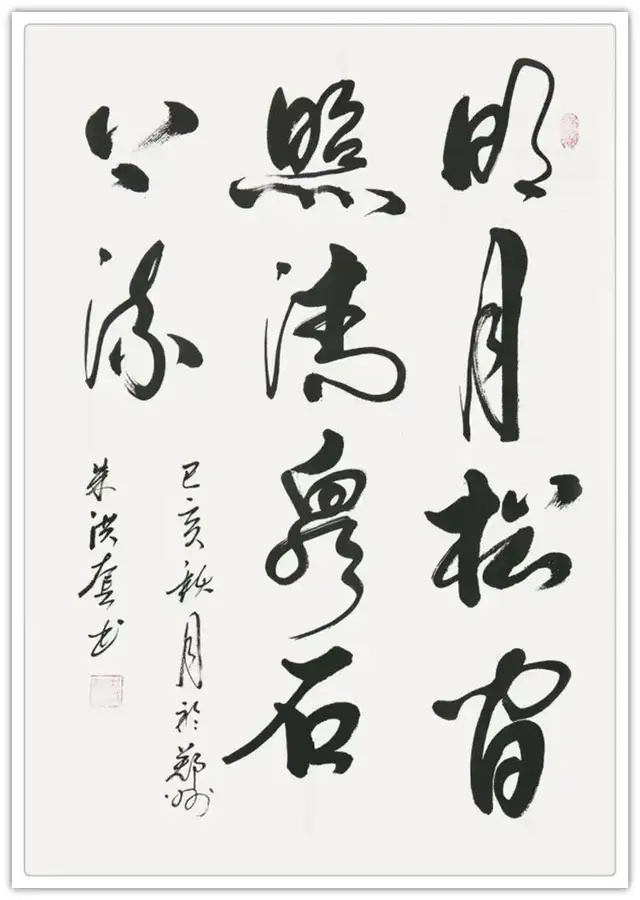 明月松间
照清泉石
上流
己亥秋月於鄭州
朱洪套书